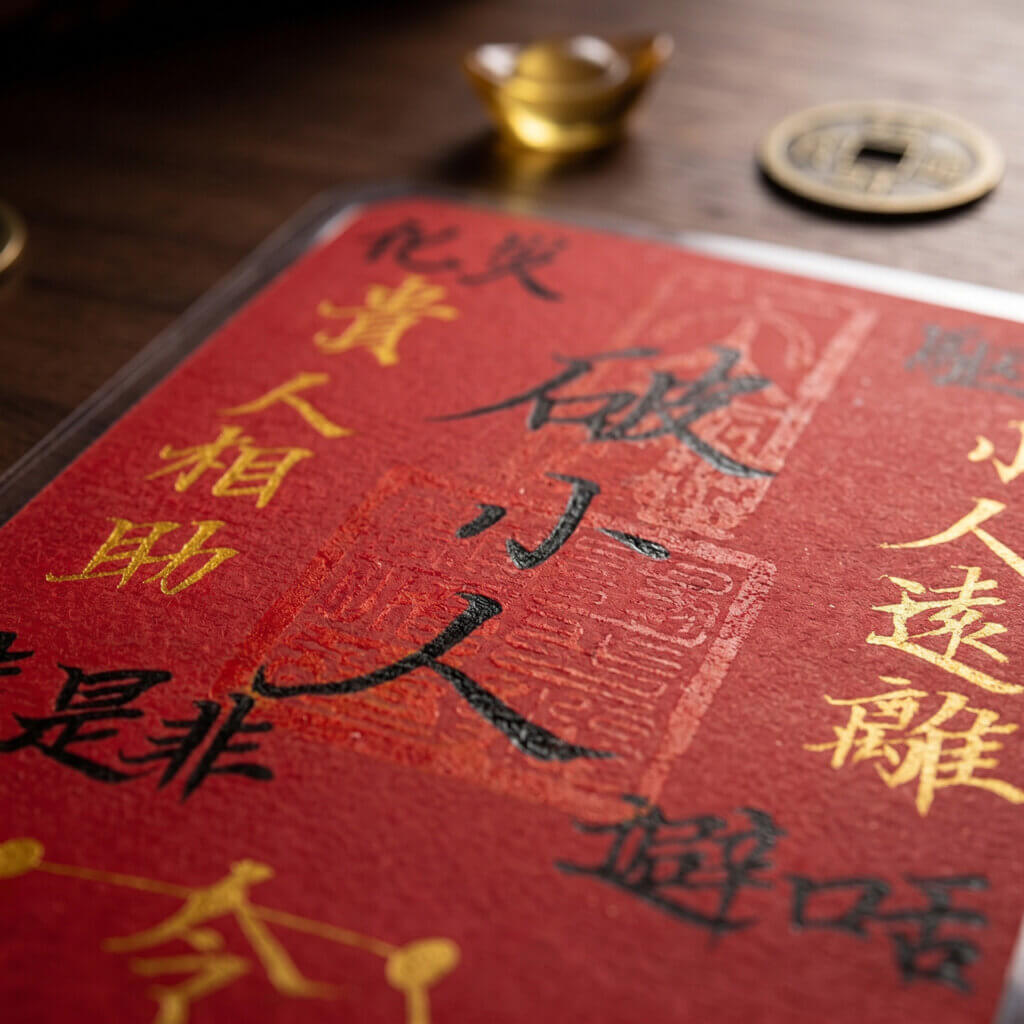 化災
破小人
小人遠離
貴人相助
是非
避口舌